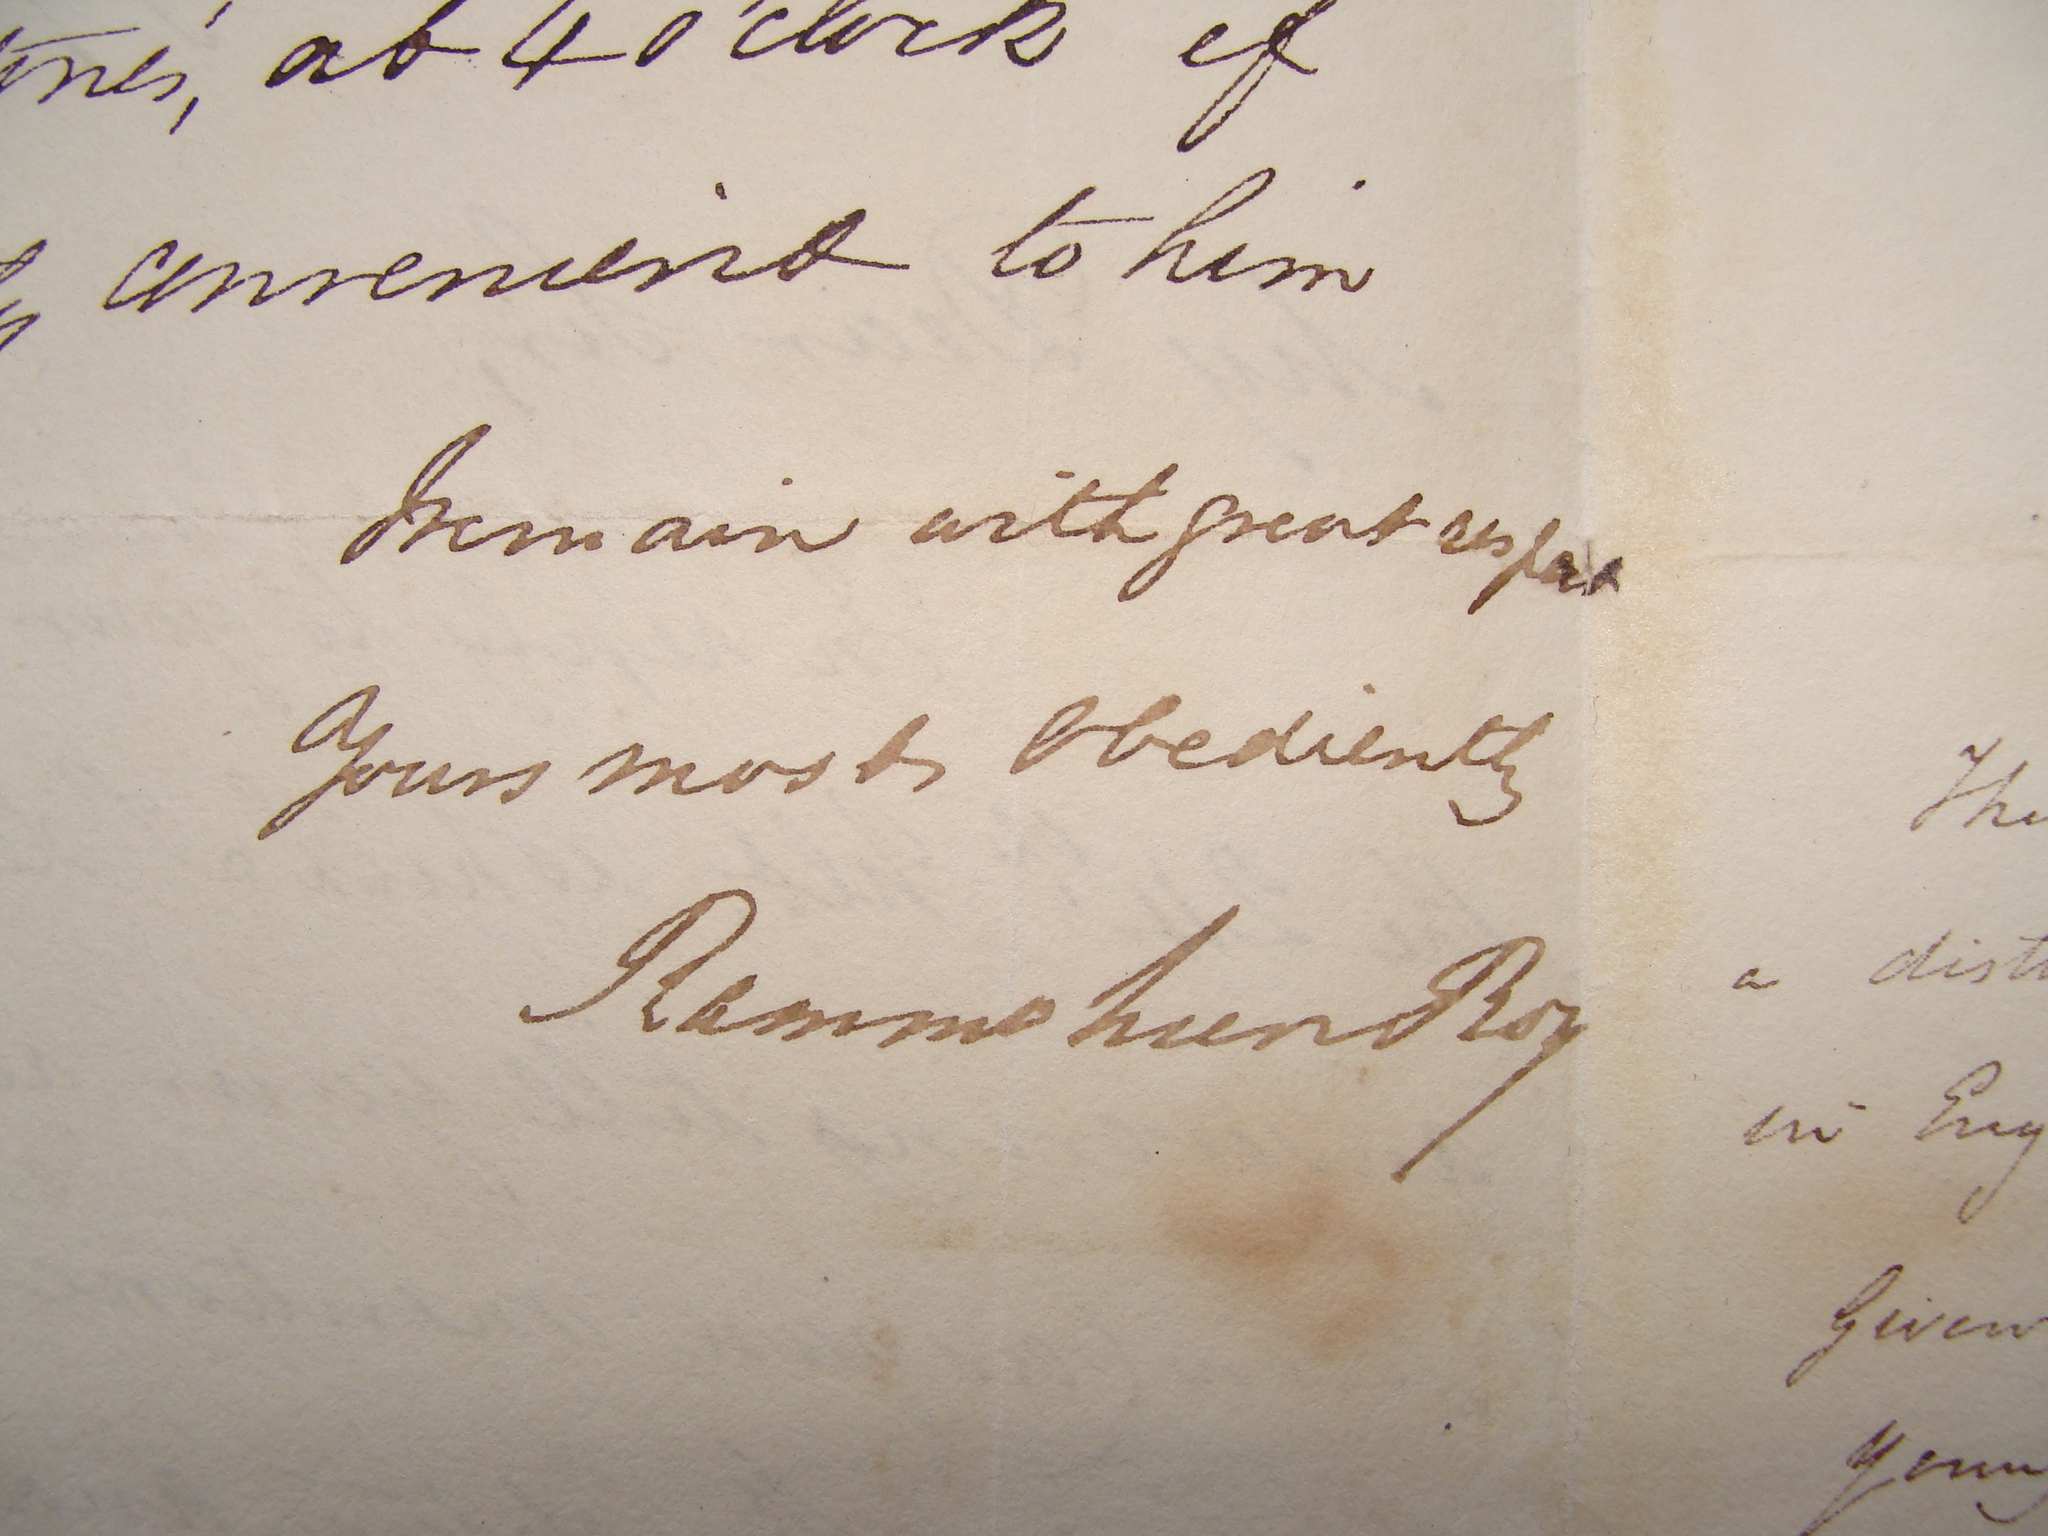 at 4 o'clock if
convenient to him
I remain with great respect
Yours most Obediently
Rammohun Roy
a
in
Given